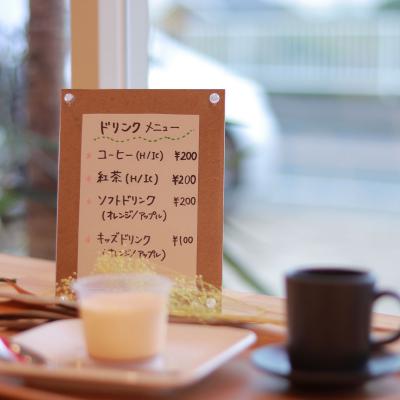 ドリンク メニュー
コーヒー(H/Ic) ¥200
紅茶(H/Ic) ¥200
ソフトドリンク ¥200
(オレンジ/アップル)
キッズドリンク ¥100
(オレンジ/アップル)